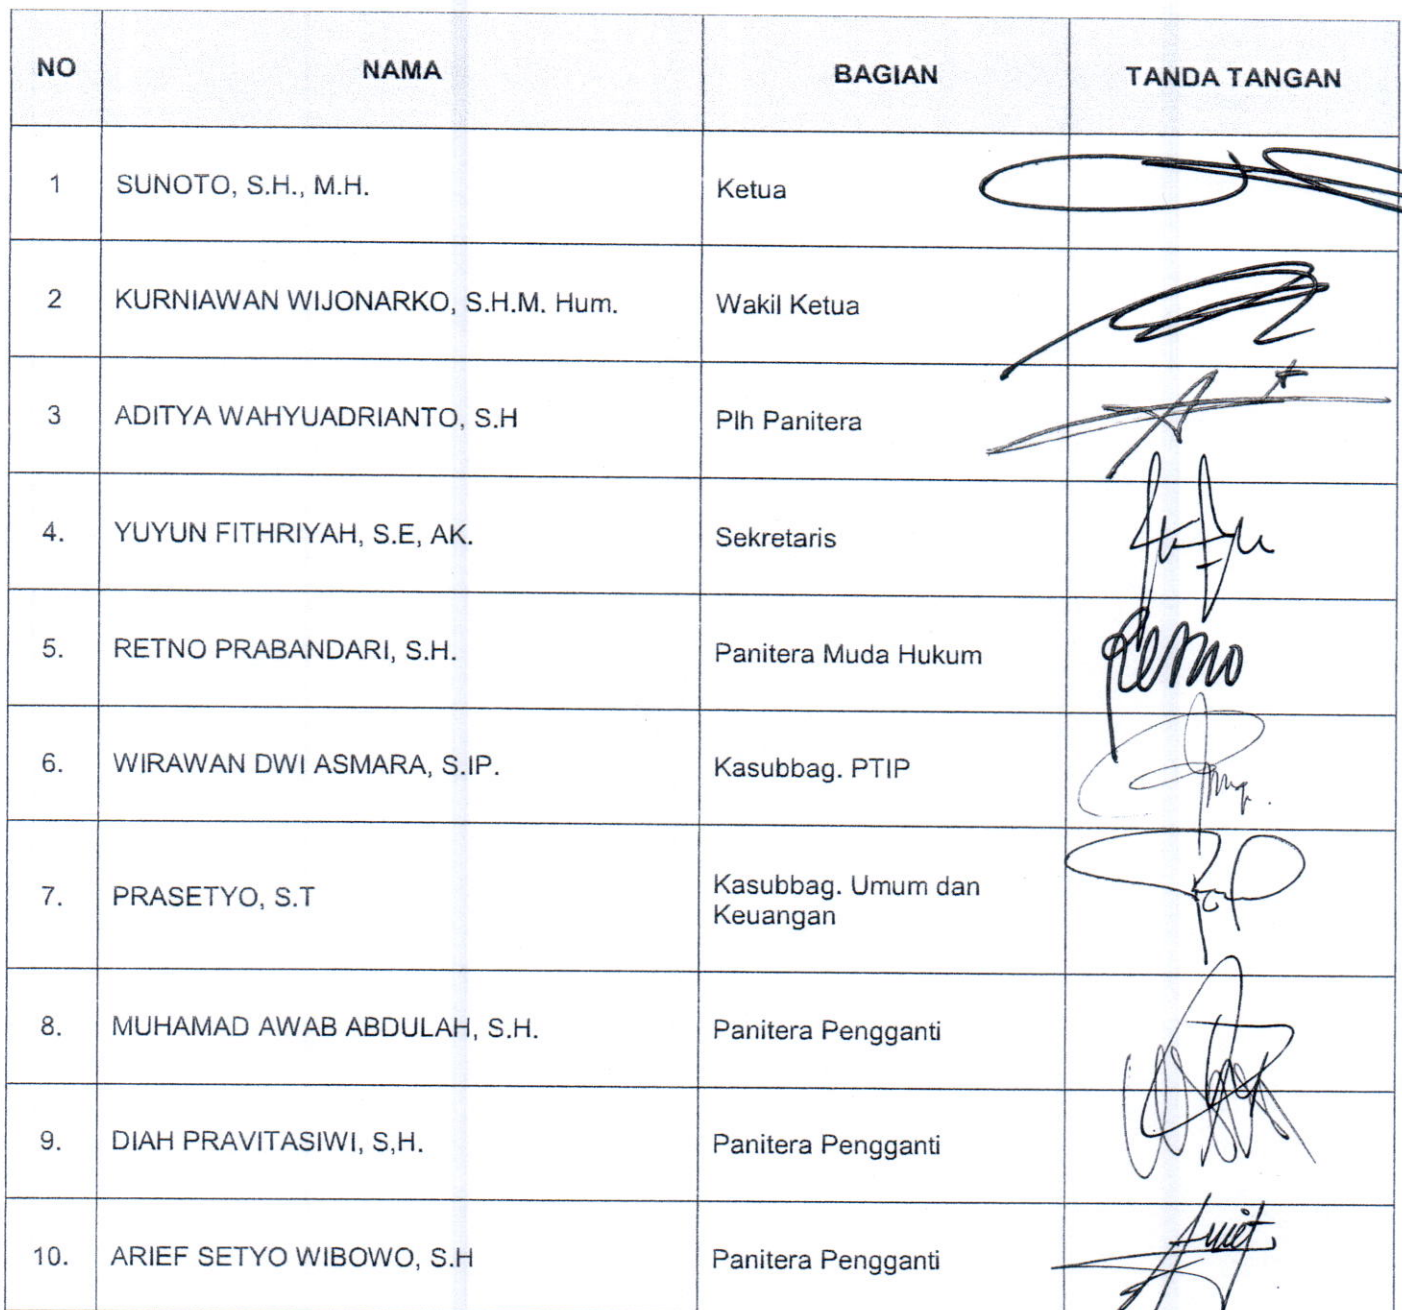 NO NAMA BAGIAN TANDA TANGAN
1 SUNOTO, S.H., M.H. Ketua
2 KURNIAWAN WIJONARKO, S.H.M. Hum. Wakil Ketua
3 ADITYA WAHYUADRIANTO, S.H Plh Panitera
4. YUYUN FITHRIYAH, S.E, AK. Sekretaris
5. RETNO PRABANDARI, S.H. Panitera Muda Hukum Retno
6. WIRAWAN DWI ASMARA, S.IP. Kasubbag. PTIP
7. PRASETYO, S.T Kasubbag. Umum dan
Keuangan
8. MUHAMAD AWAB ABDULAH, S.H. Panitera Pengganti
9. DIAH PRAVITASIWI, S,H. Panitera Pengganti
10. ARIEF SETYO WIBOWO, S.H Panitera Pengganti Arief